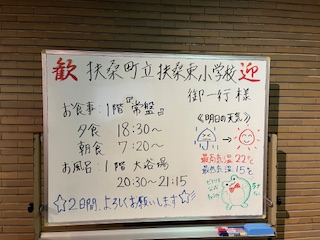 歓 扶桑町立 扶桑東小学校 迎
御一行様
お食事:1階『常盤』
夕食 18:30〜
朝食 7:20〜
お風呂:1階 大浴場
20:30〜21:15
☆2日間、よろしくお願いします☆
《明日の天気》
→
最高気温 22℃
最低気温 15℃